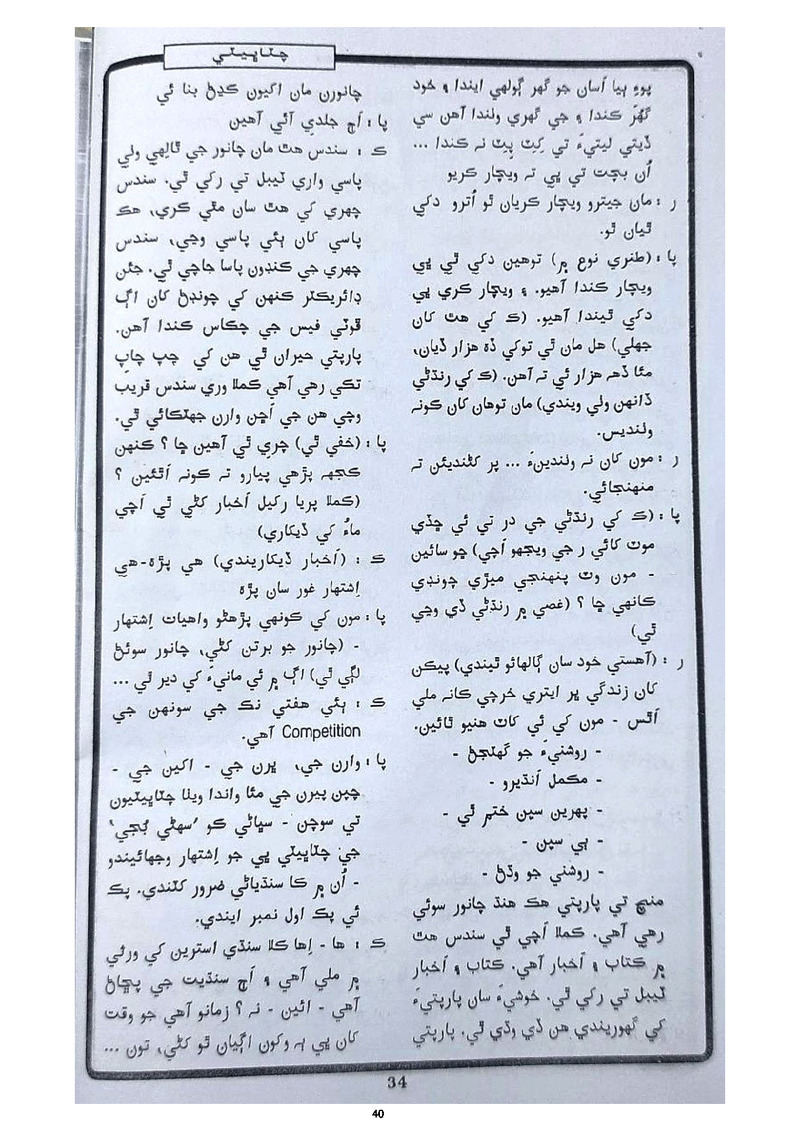 چٽاڀيٽي
پوءِ ٻيا اَسان جو گهر ڳولهي ايندا ۽ خود
گهُرَ ڪندا ۽ جي گهري وٺندا آهن سي
ڏيتي ليتيءَ تي ڪِٽِ پِٽ نہ ڪندا ...
اُن بچت تي پي تہ ويچار ڪريو
ر : مان جيترو ويچار ڪريان ٿو اُترو دکي
ٿيان ٿو.
پا : (طنري نوع ۾) توهين دکي ٿي پي
ويچار ڪندا آهيو. ۽ ويچار ڪري پي
دکي ٿيندا آهيو. (ڪ کي هٿ کان
جهلي) هل مان ٿي توکي ڏھ هزار ڏيان،
مٿا ڏهہ هزار ئي تہ آهن. (ڪ کي رنڌڻي
ڏانهن ولي ويندي) مان توهان کان ڪونہ
ولنديس.
ر : مون کان نہ ولندينءَ ... پر ڪٽنديئن تہ
منهنجائي.
پا : (ڪ کي رنڌڻي جي در تي ئي ڇڏي
موٽ کائي ر جي ويجهو اَچي) چو سائين
- مون وٽ پنهنجي ميڙي چونڊي
ڪانهي ڇا ؟ (غصي ۾ رنڌڻي ڏي وڃي
ٿي)
ر : (آهستي خود سان ڳالهائو ٿيندي) پيڪن
کان زندگي ڀر ايتري خرچي ڪانہ ملي
اَٿس - مون کي ئي کاٽ هنيو ٿائين.
- روشنيءَ جو گهٽجڻ -
- مڪمل اَنڌيرو -
- پهرين سين ختم ٿي -
- ٻي سين -
- روشني جو وڌڻ -
منچ تي پارپتي هڪ هنڌ چانور سوئي
رهي آهي. ڪملا اَچي ٿي سندس هٿ
۾ ڪتاب ۽ اَخبار آهي. ڪتاب ۽ اَخبار
ٽيبل تي رکي ٿي. خوشيءَ سان پارپتيءَ
کي گهوريندي هن ڏي وڌي ٿي. پارپتي
چانورن مان اکيون ڪڍڻ بنا ئي
پا : اَڄ جلدي آئي آهين
ڪ : سندس هٿ مان چانور جي ٿالهي ولي
پاسي واري ٽيبل تي رکي ٿي. سندس
چهري کي هٿ سان مٿي ڪري، هڪ
پاسي کان ٻئي پاسي وڃي، سندس
چهري جي ڪنڊون پاسا جاچي ٿي. جئن
ڊائريڪٽر ڪنهن کي چونڊڻ کان اڳ
ڦوٽي فيس جي چڪاس ڪندا آهن.
پارپتي حيران ٿي هن کي چپ چاپ
تڪي رهي آهي ڪملا وري سندس قريب
وڃي هن جي اَڇن وارن جهٽڪائي ٿي.
پا : (خفي ٿي) چري ٿي آهين ڇا ؟ ڪنهن
ڪجهہ پڙهي پيارو تہ ڪونہ اَٿئين ؟
(ڪملا پريا رکيل اَخبار کڻي ٿي اَچي
ماءُ کي ڏيکاري)
ڪ : (اَخبار ڏيکاريندي) هي پڙھ-هي
اِشتهار غور سان پڙھ
پا : مون کي ڪونهي پڙهڻو واهيات اِشتهار
- (چانور جو برتن کڻي، چانور سوئڻ
لڳي ٿي) اڳ ۾ ئي مانيءَ کي دير ٿي ...
ڪ : ٻئي هفتي نڪ جي سونهن جي
Competition آهي.
پا : وارن جي، ڀرن جي - اکين جي -
چپن پيرن جي مٿا واندا ويٺا چٽاڀيٽيون
ٿي سوچن - سڀاڻي ڪو 'سهڻي ٻُجي'
جي چٽاڀيٽي پي جو اِشتهار وجهائيندو
- اُن ۾ ڪا سنڌياڻي ضرور کٽندي. پڪ
ئي پڪ اول نمبر ايندي.
ڪ : ها - اِها ڪلا سنڌي استرين کي ورثي
۾ ملي آهي ۽ اَڄ سنڌيت جي پڇاڻ
آهي - ائين - نہ ؟ زمانو آهي جو وقت
کان پي ٻہ وکون اڳيان ٿو کڻي، تون ...
34
40